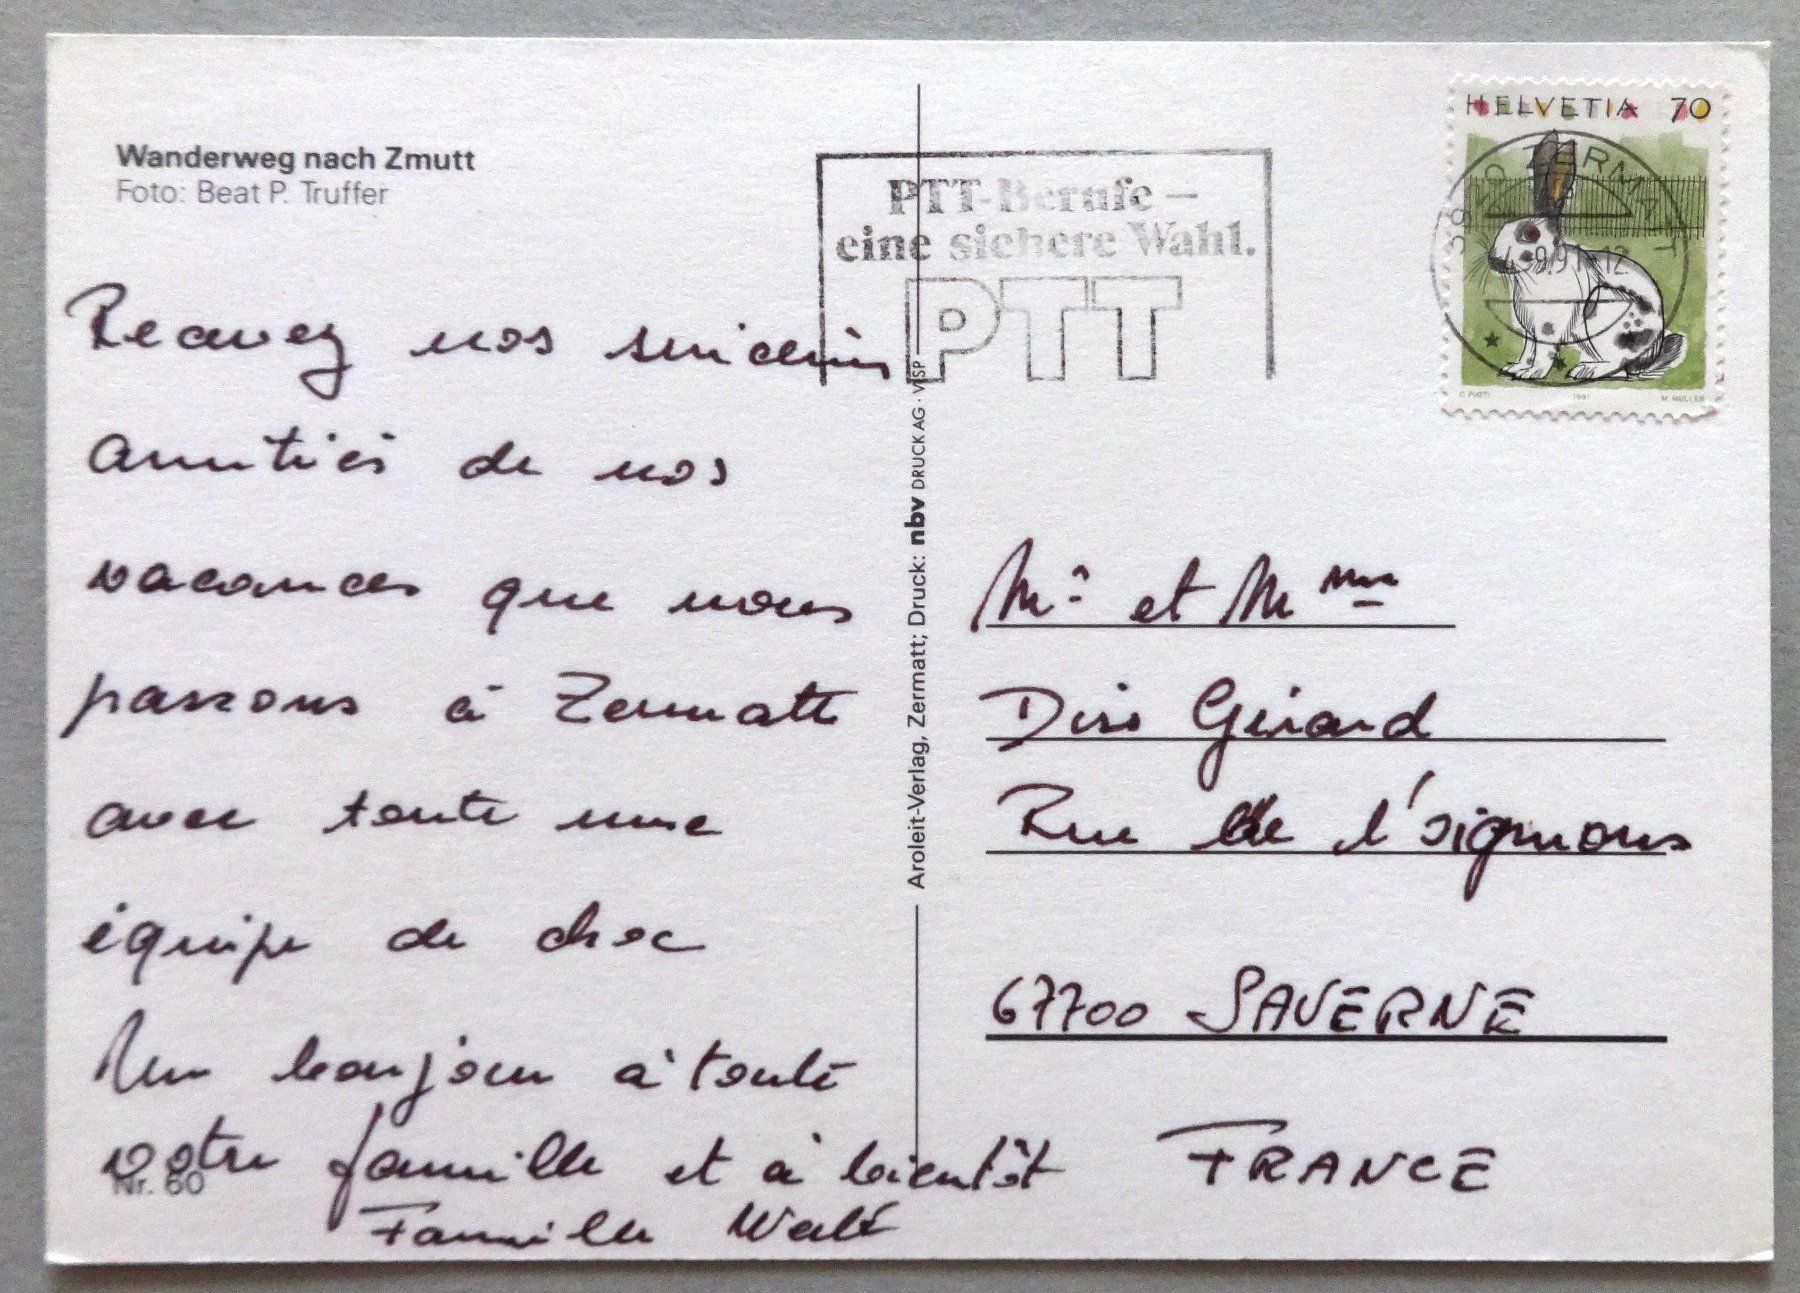 Wanderweg nach Zmutt
Foto: Beat P. Truffer
Recevez nos sincères
amitiés de nos
vacances que nous
passons à Zermatt
avec toute une
équipe de choc
Un bonjour à toute
votre famille et à bientôt
Famille
Nr. 60
Aroleit-Verlag, Zermatt; Druck: nbv DRUCK AG · VISP
PTT-Berufe –
eine sichere Wahl.
PTT
HELVETIA 70
3920 ZERMATT
1991
M. MÜLLER
Mr et Mme
Diss Girard
Rue de l'
67700 SAVERNE
FRANCE